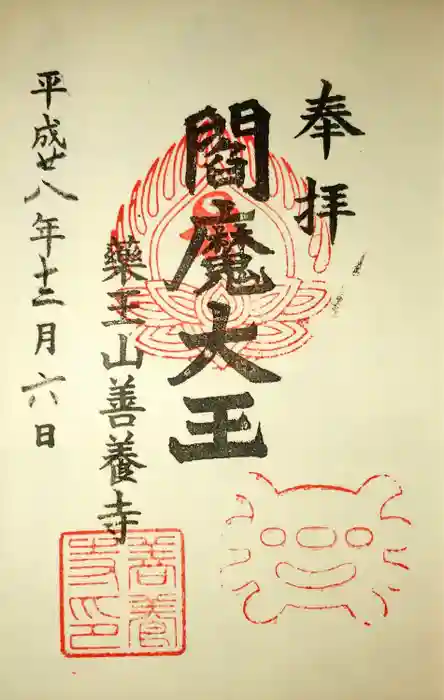 奉拝
閻魔大王
藥王山善養寺
平成廿八年十二月六日
善養
寺印